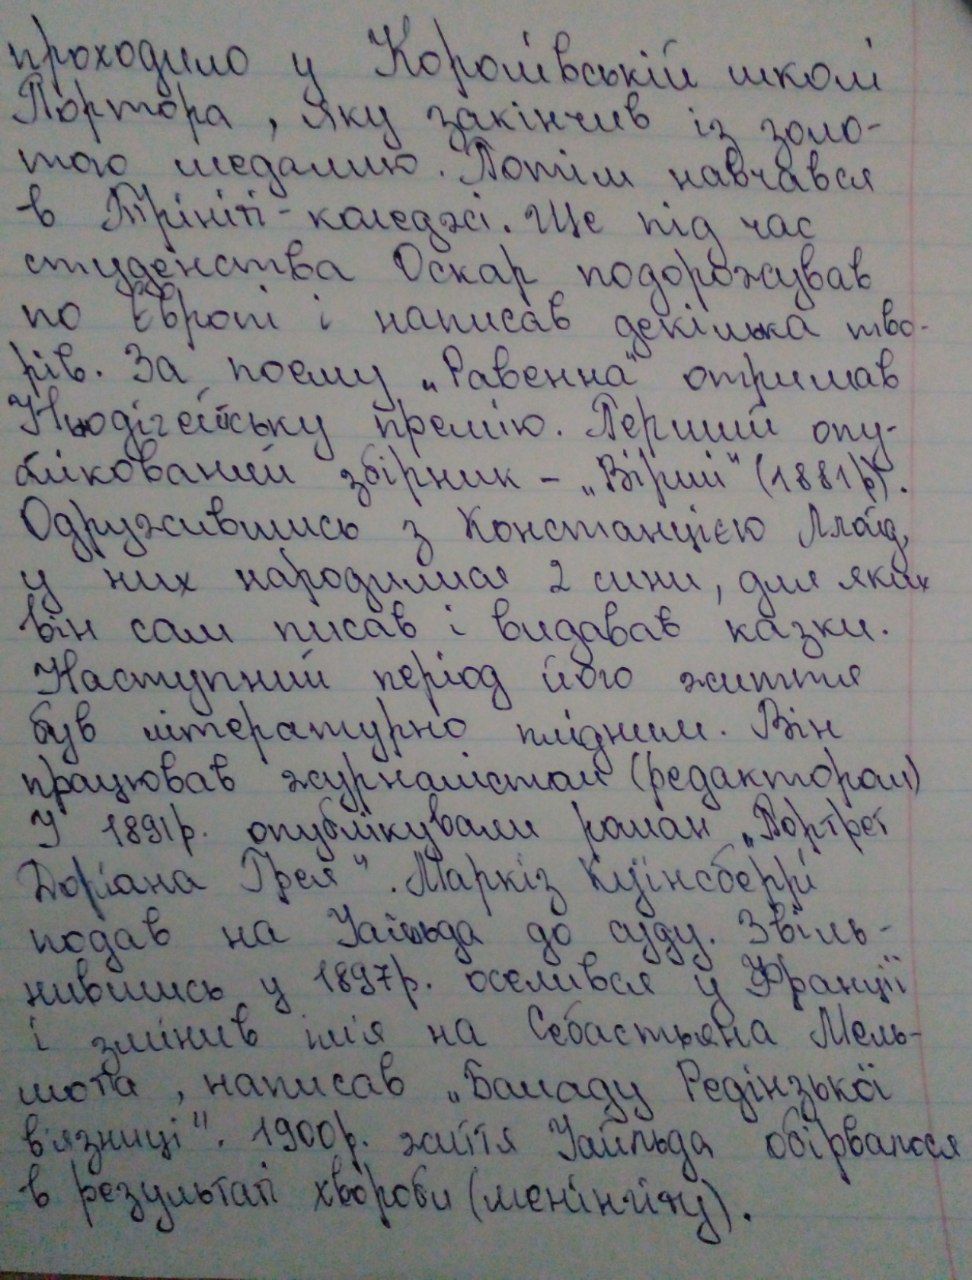 проходило у Королівській школі
Портора, яку закінчив із золо-
тою медаллю. Потім навчався
в Трініті-коледжі. Ще під час
студенства Оскар подорожував
по Європі і написав декілька тво-
рів. За поему „Равенна" отримав
Ньюдігейтську премію. Перший опу-
блікований збірник - „Вірші" (1881р).
Одружившись з Констанцією Ллойд,
у них народилися 2 сини, для яких
він сам писав і видавав казки.
Наступний період його життя
був літературно плідним. Він
працював журналістом (редактором)
У 1891р. опублікували роман „Портрет
Доріана Грея". Маркіз Куїнсберрі
подав на Уайльда до суду. Звіль-
нившись у 1897р. оселився у Франції
і змінив ім'я на Себастьяна Мель-
мота, написав „Баладу Редінзької
в'язниці". 1900р. життя Уайльда обірвалося
в результаті хвороби (менінгіту).